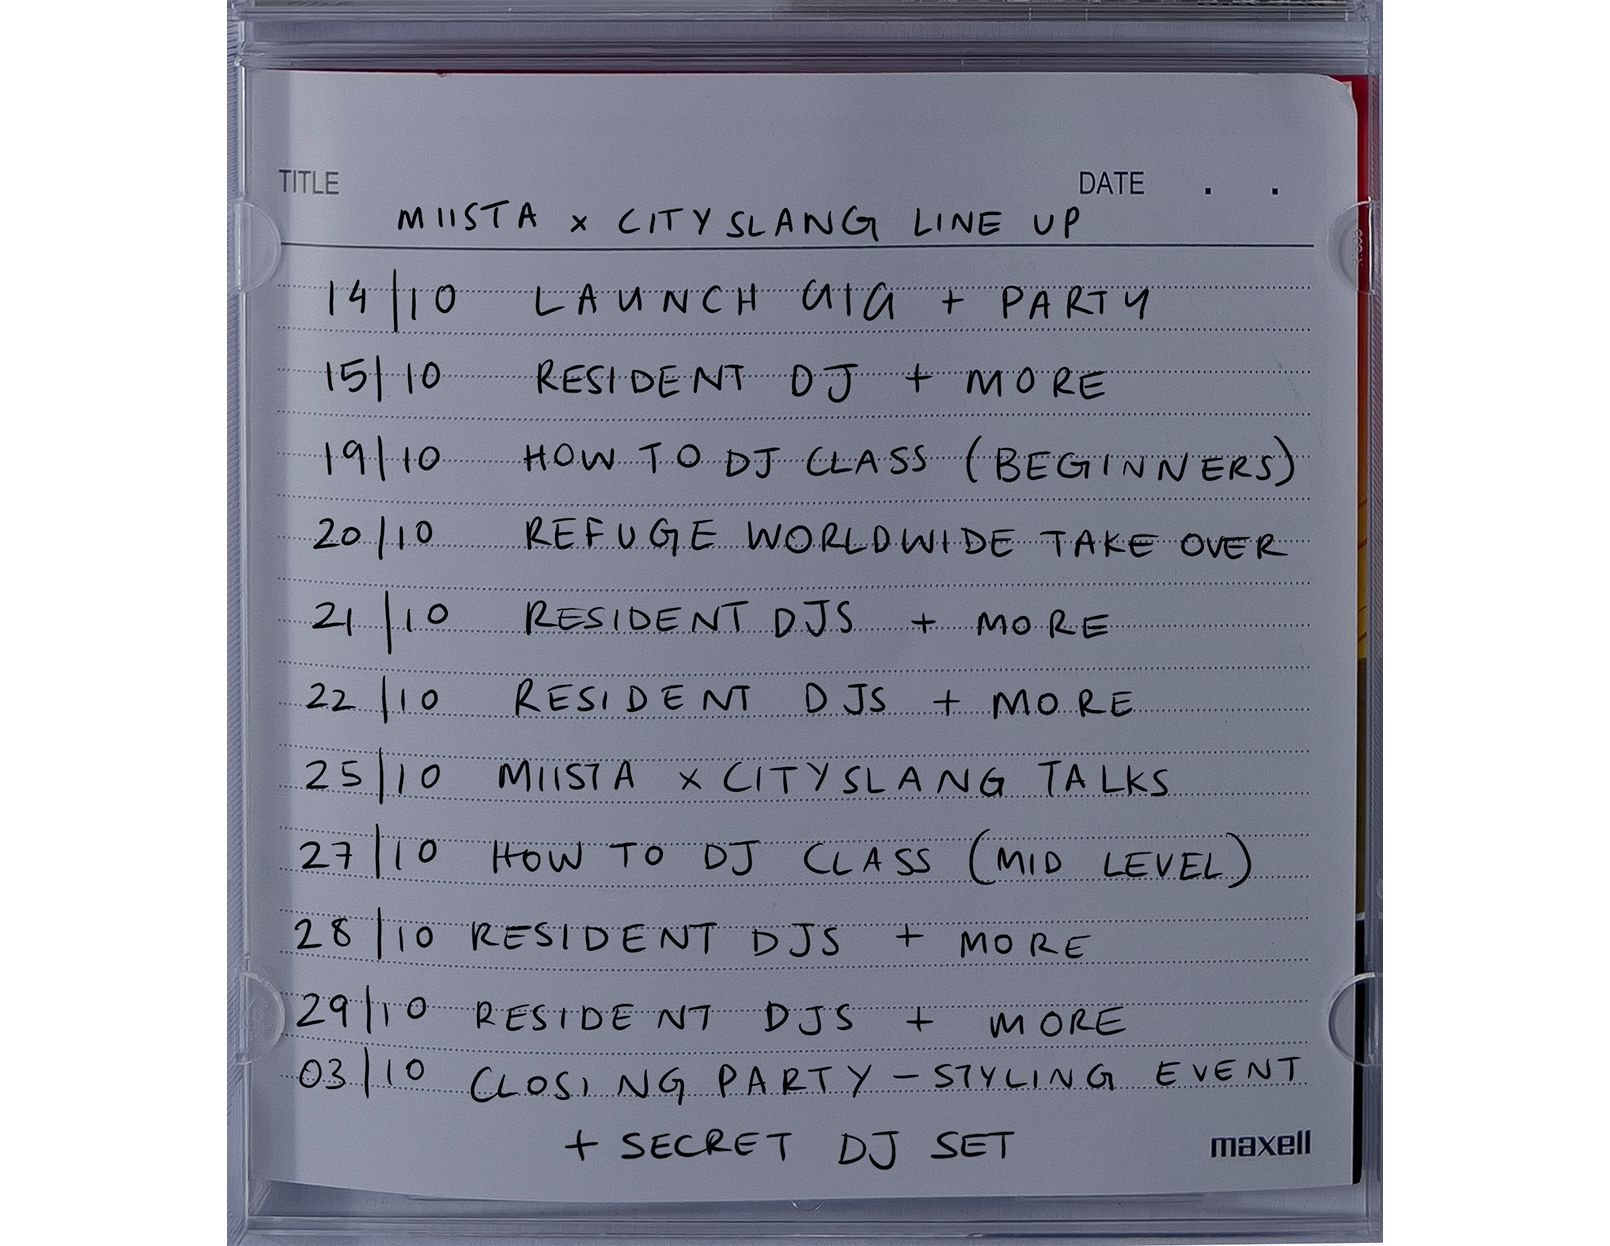 TITLE DATE . .
MIISTA x CITYSLANG LINE UP
14|10 LAUNCH GIG + PARTY
15|10 RESIDENT DJ + MORE
19|10 HOW TO DJ CLASS (BEGINNERS)
20|10 REFUGE WORLDWIDE TAKE OVER
21|10 RESIDENT DJS + MORE
22|10 RESIDENT DJS + MORE
25|10 MIISTA x CITYSLANG TALKS
27|10 HOW TO DJ CLASS (MID LEVEL)
28|10 RESIDENT DJS + MORE
29|10 RESIDENT DJS + MORE
03|10 CLOSING PARTY - STYLING EVENT
+ SECRET DJ SET
maxell